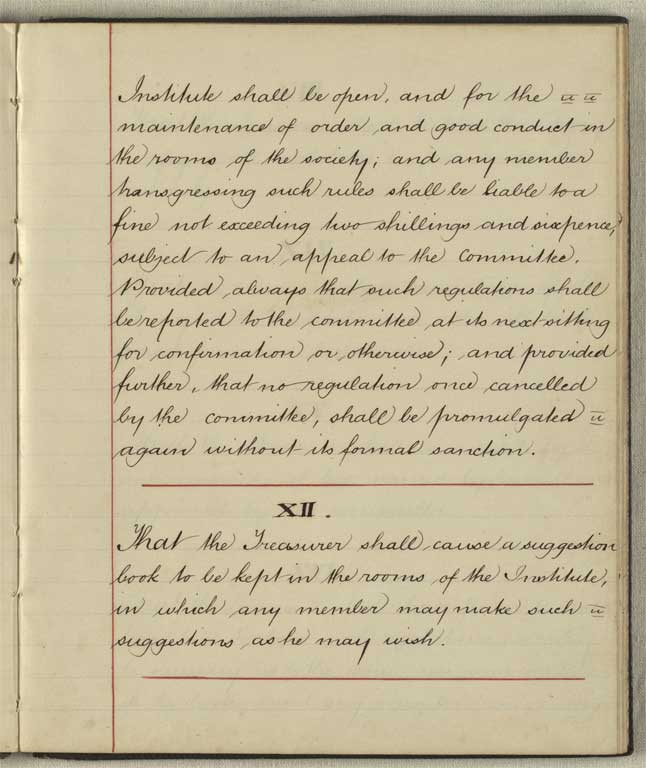 Institute shall be open, and for the
maintenance of order and good conduct in
the rooms of the society; and any member
transgressing such rules shall be liable to a
fine not exceeding two shillings and sixpence,
subject to an appeal to the committee.
Provided always that such regulations shall
be reported to the committee at its next sitting
for confirmation or otherwise; and provided
further, that no regulation once cancelled
by the committee, shall be promulgated
again without its formal sanction.
XII.
That the Treasurer shall cause a suggestion
book to be kept in the rooms of the Institute,
in which any member may make such
suggestions as he may wish.